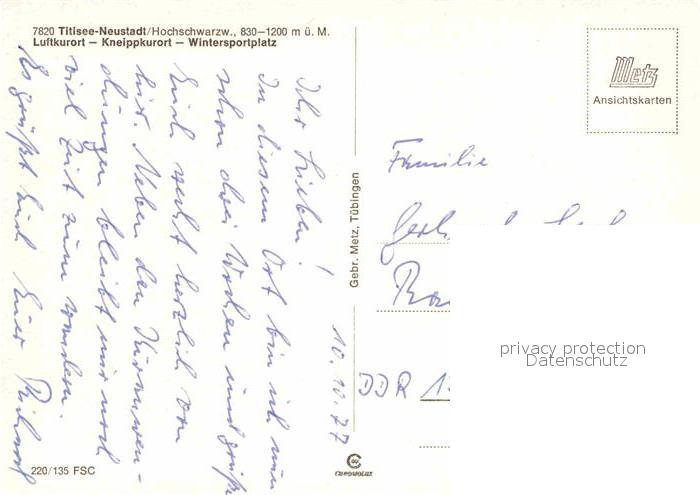 7820 Titisee-Neustadt/Hochschwarzw., 830–1200 m ü. M.
Luftkurort – Kneippkurort – Wintersportplatz
10.10.77
Ihr Lieben!
In diesem Ort bin ich nun
schon drei Wochen und grüße
Euch recht herzlich von
hier. Neben den Kuranwen-
dungen bleibt mir noch
viel Zeit zum wandern.
Es grüßt Euch Euer
220/135 FSC
Gebr. Metz, Tübingen
CHROMOLUX
Metz
Ansichtskarten
Familie
DDR
privacy protection
Datenschutz